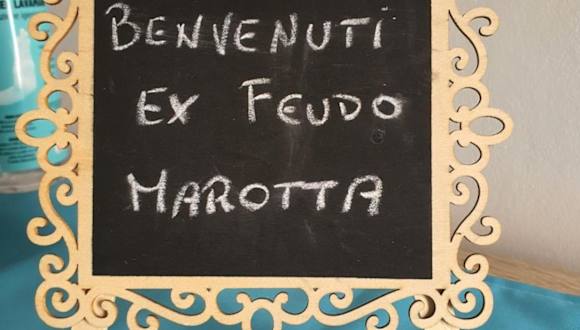 BENVENUTI
EX FEUDO
MAROTTA